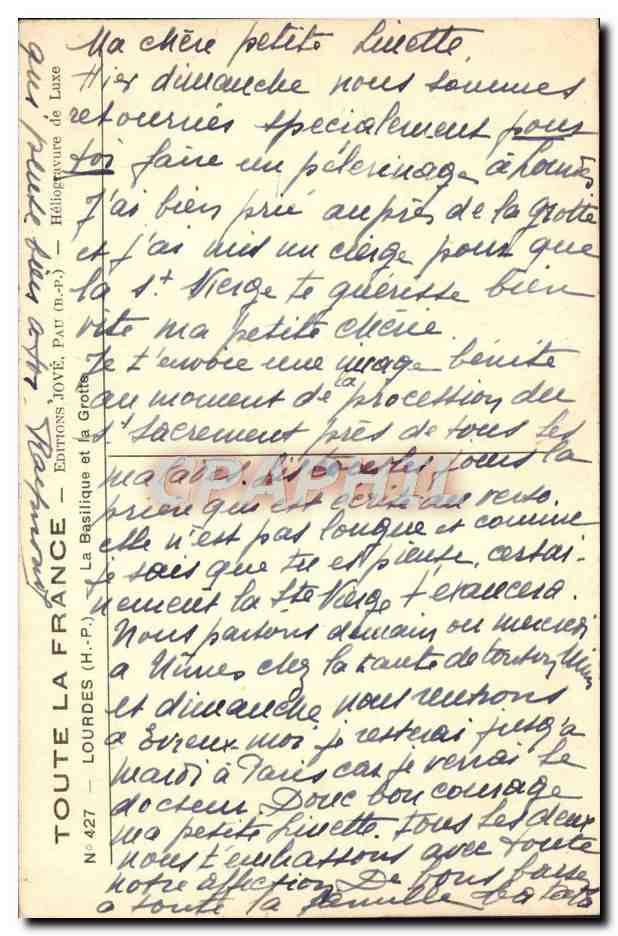 Ma chère petite Linette
Hier dimanche nous sommes
retournés specialement pour
toi faire un pélerinage à Lourdes
J'ai bien prié auprès de la grotte
et j'ai mis un cierge pour que
la St Vierge te guérisse bien
vite ma petite chérie
Je t'envoie une image bénite
au moment de la procession du
St Sacrement près de tous les
malades. Lis tous les jours la
prière qui est écrite au verso.
elle n'est pas longue et comme
je sais que tu es pieuse, certai-
nement la Ste Vierge t'exaucera.
Nous partons demain ou mercredi
a Nîmes chez la tante de tonton
et dimanche nous rentrons
a Evreux moi je resterai jusqu'à
mardi à Paris car je verrai le
docteur. Donc bon courage
ma petite Linette. Tous les deux
nous t'embrassons avec toute
notre affection De bons baisers
a toute la famille
TOUTE LA FRANCE — EDITIONS JOVÉ, PAU (B.-P.) — Héliogravure de Luxe
N° 427 — LOURDES (H.-P.) — La Basilique et la Grotte
CPAPHIL